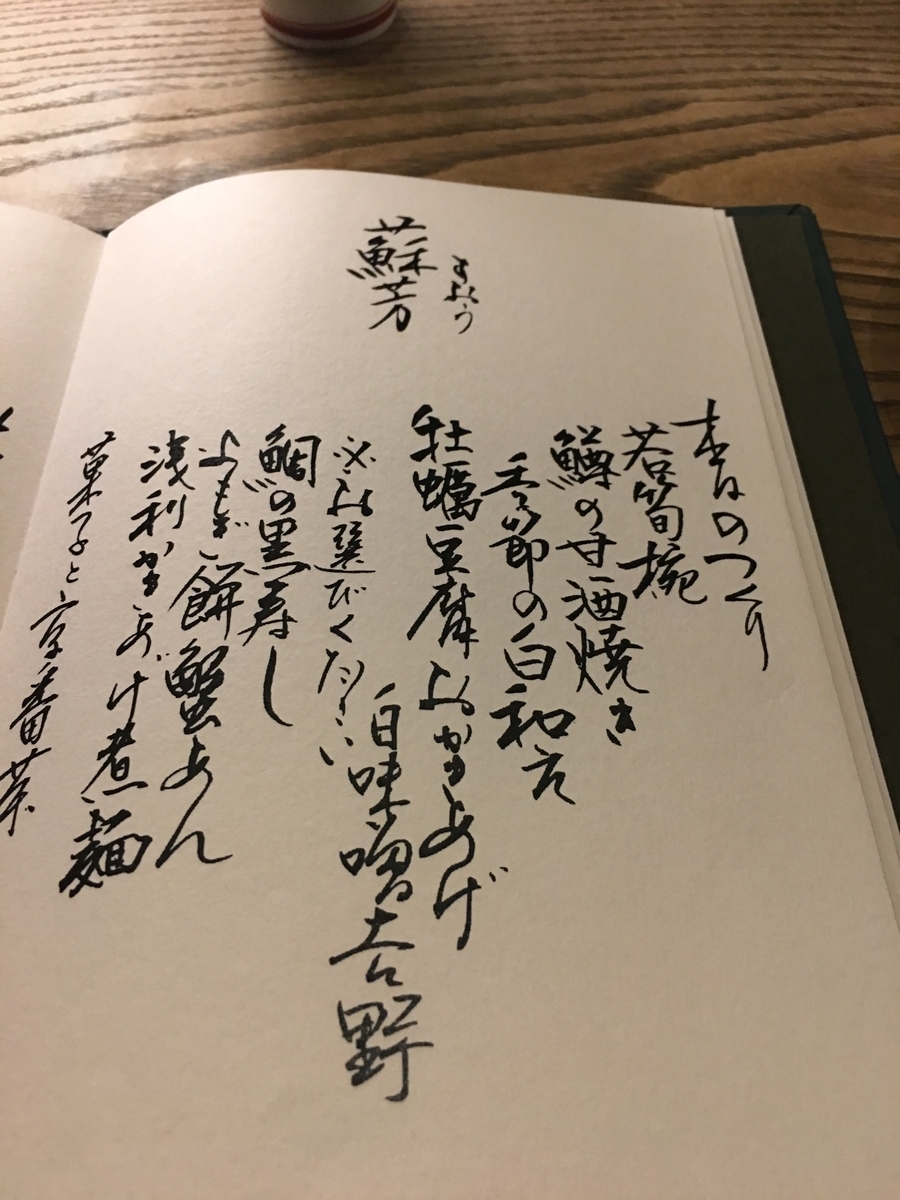 蘇芳
すおう
本日のつくり
若筍椀
鱒の甘酒焼き
季節の白和え
牡蠣豆腐おかきあげ
白味噌吉野
※お選びください
鯛の黒寿し
よもぎ餅蟹あん
浅利かきあげ煮麺
菓子と京番茶